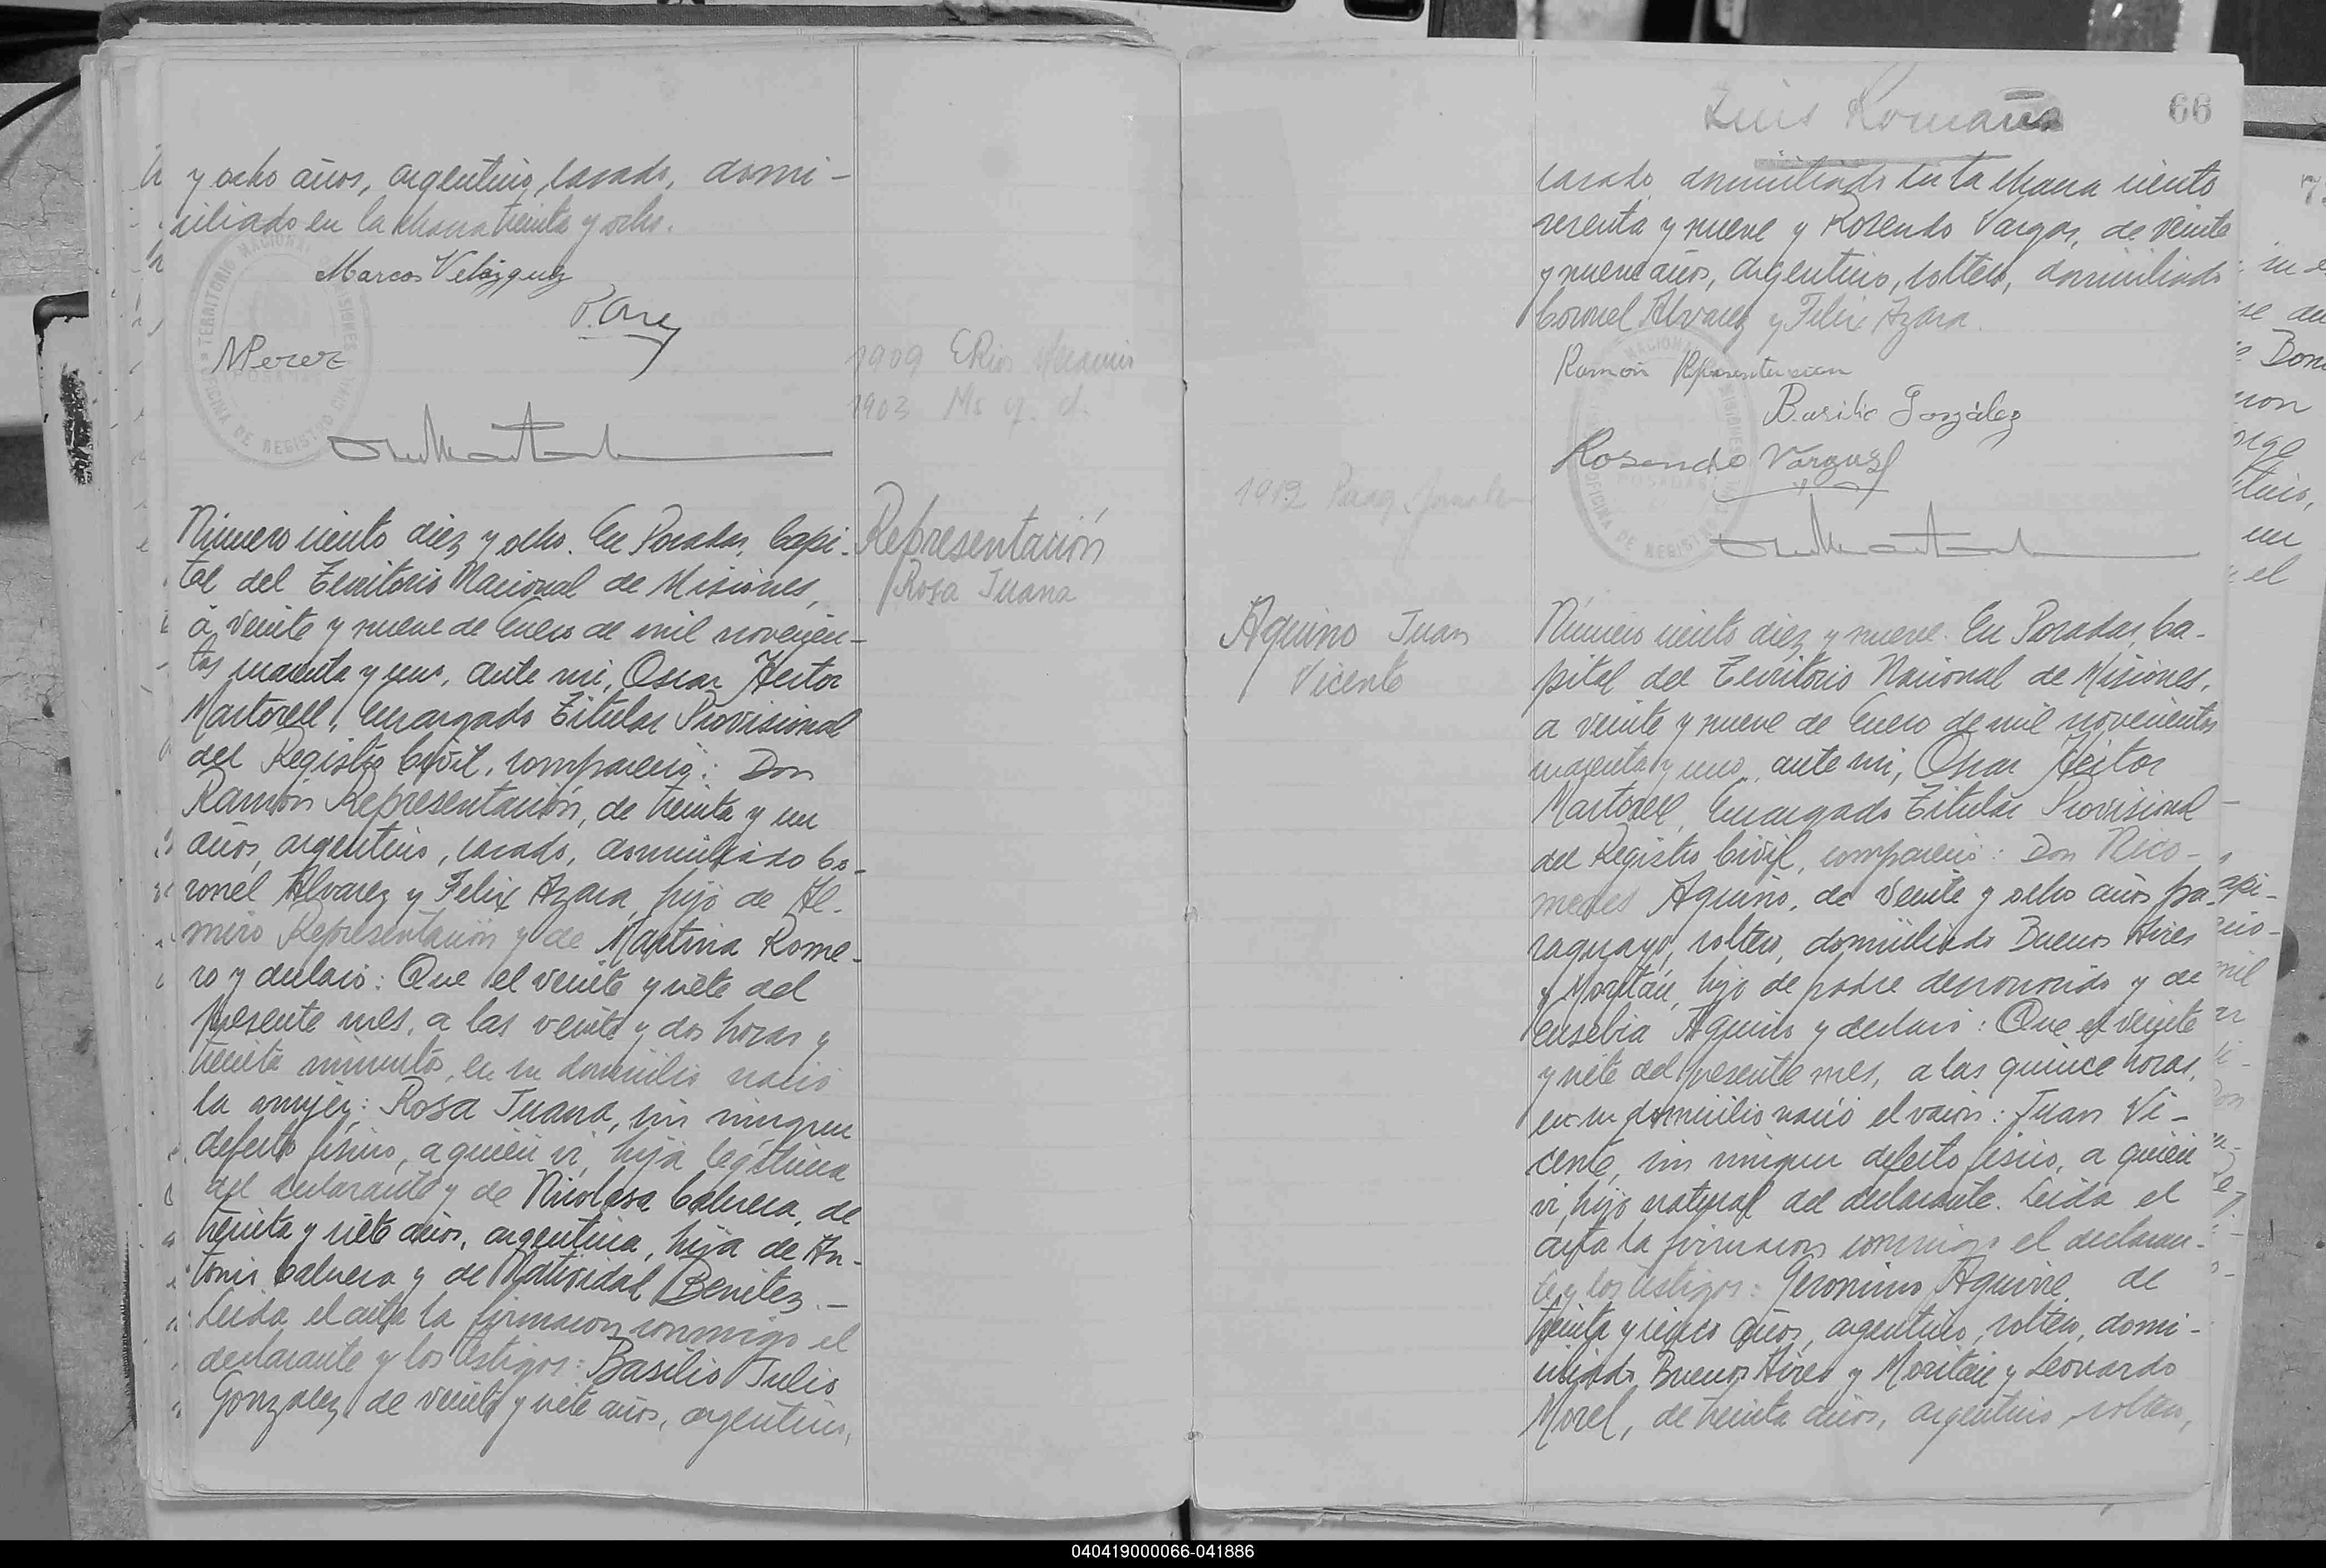 y ocho años, argentino, casado, domi-
ciliado en la chacra treinta y ocho.
Marcos Velázquez
NPerez
1909 ERios
1903 Ms
Representación
Rosa Juana
Número ciento diez y ocho. En Posadas, Capi-
tal del Territorio Nacional de Misiones,
á veinte y nueve de Enero de mil novecien-
tos cuarenta y uno, ante mi, Oscar Héctor
Martorell, Encargado Titular Provisional
del Registro Civil, compareció: Don
Ramón Representación, de treinta y un
años, argentino, casado, domiciliado Co-
ronel Alvarez y Felix Azara, hijo de Al-
miro Representación y de Martina Rome-
ro y declaró: Que el veinte y siete del
presente mes, a las veinte y dos horas y
treinta minutos, en su domicilio nació
la mujer: Rosa Juana, sin ningun
defecto físico, a quién vi, hija legítima
del declarante y de Nicolasa Cabrera, de
treinta y siete años, argentina, hija de An-
tonio Cabrera y de Natividad Benitez.-
Leida el acta la firmaron conmigo el
declarante y los testigos: Basilio Julio
Gonzalez, de veinte y siete años, argentino,
Luis Romaña
66
casado, domiciliado en la chacra ciento
sesenta y nueve y Rosendo Vargas, de veinte
y nueve años, argentino, soltero, domiciliado
Coronel Alvarez y Felix Azara.
Ramón Representacion
Basilio González
Rosendo Vargas
1912
Aquino Juan
Vicente
Número ciento diez y nueve. En Posadas, Ca-
pital del Territorio Nacional de Misiones,
a veinte y nueve de Enero de mil novecientos
cuarenta y uno, ante mi, Oscar Héctor
Martorell, Encargado Titular Provisional
del Registro Civil, compareció: Don Nico-
medes Aquino, de veinte y ocho años, pa-
raguayo, soltero, domiciliado Buenos Aires
y Moritán, hijo de padre desconocido y de
Eusebia Aquino y declaró: Que el veinte
y siete del presente mes, a las quince horas,
en su domicilio nació el varón: Juan Vi-
cente, sin ningun defecto físico, a quién
vi, hijo natural del declarante. Leida el
acta la firmaron conmigo el declaran-
te y los testigos: Geronimo Aguirre, de
treinta y cinco años, argentino, soltero, domi-
ciliado Buenos Aires y Moritán y Leonardo
Morel, de treinta años, argentino, soltero,
040419000066-041886